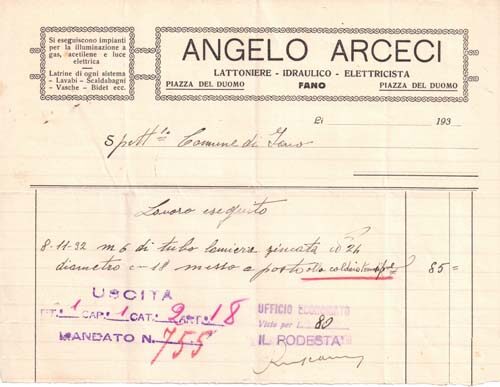 Si eseguiscono impianti
per la illuminazione a
gas, acetilene e luce
elettrica
Latrine di ogni sistema
- Lavabi - Scaldabagni
- Vasche - Bidet ecc.
ANGELO ARCECI
LATTONIERE - IDRAULICO - ELETTRICISTA
PIAZZA DEL DUOMO FANO PIAZZA DEL DUOMO
Li 193
Spett.le Comune di Fano
Lavoro eseguito
8-11-32 m 6 di tubo lamiera zincata no 24
diametro c-18 messo a posto 85=
USCITA
TIT. 1 CAP. 1 CAT. 2 ART. 18
MANDATO N. 755
UFFICIO ECONOMATO
Visto per L. 80
IL PODESTA'